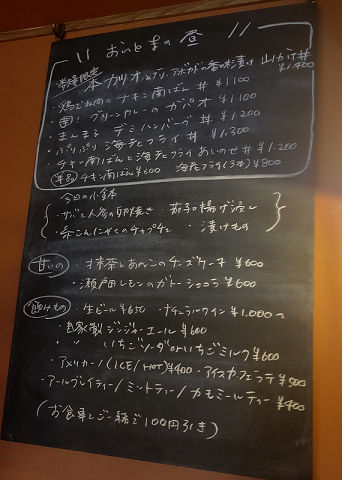 おいとまの昼
数量限定 本カツオとアボカドの香味漬け 山かけ丼 ¥1.400
・鶏むね肉のチキン南ばん丼 ¥1.100
・グリーンカレーのガパオ ¥1.100
・まんまる デミハンバーグ丼 ¥1.200
・ぷりぷり 海老フライ丼 ¥1.300
・チキン南ばんと海老フライあいのせ丼 ¥1.200
単品 チキン南ばん ¥600 海老フライ(3本)¥800
今日の小鉢
・サバと人参の卵焼き ・茄子の揚げ浸し
・糸こんにゃくのチャプチェ ・漬けもの
甘いの ・抹茶とあんこのチーズケーキ ¥600
・瀬戸田レモンのガトーショコラ ¥600
飲けもの ・生ビール ¥650 ・ナチュラルワイン ¥1.000〜
・自家製ジンジャーエール ¥600
・〃 いちごソーダorいちごミルク ¥600
・アメリカーノ(ICE/HOT)¥400 ・アイスカフェラテ ¥500
・アールグレイティー/ミントティー/カモミールティー ¥400
(お食事とご一緒で100円引き)